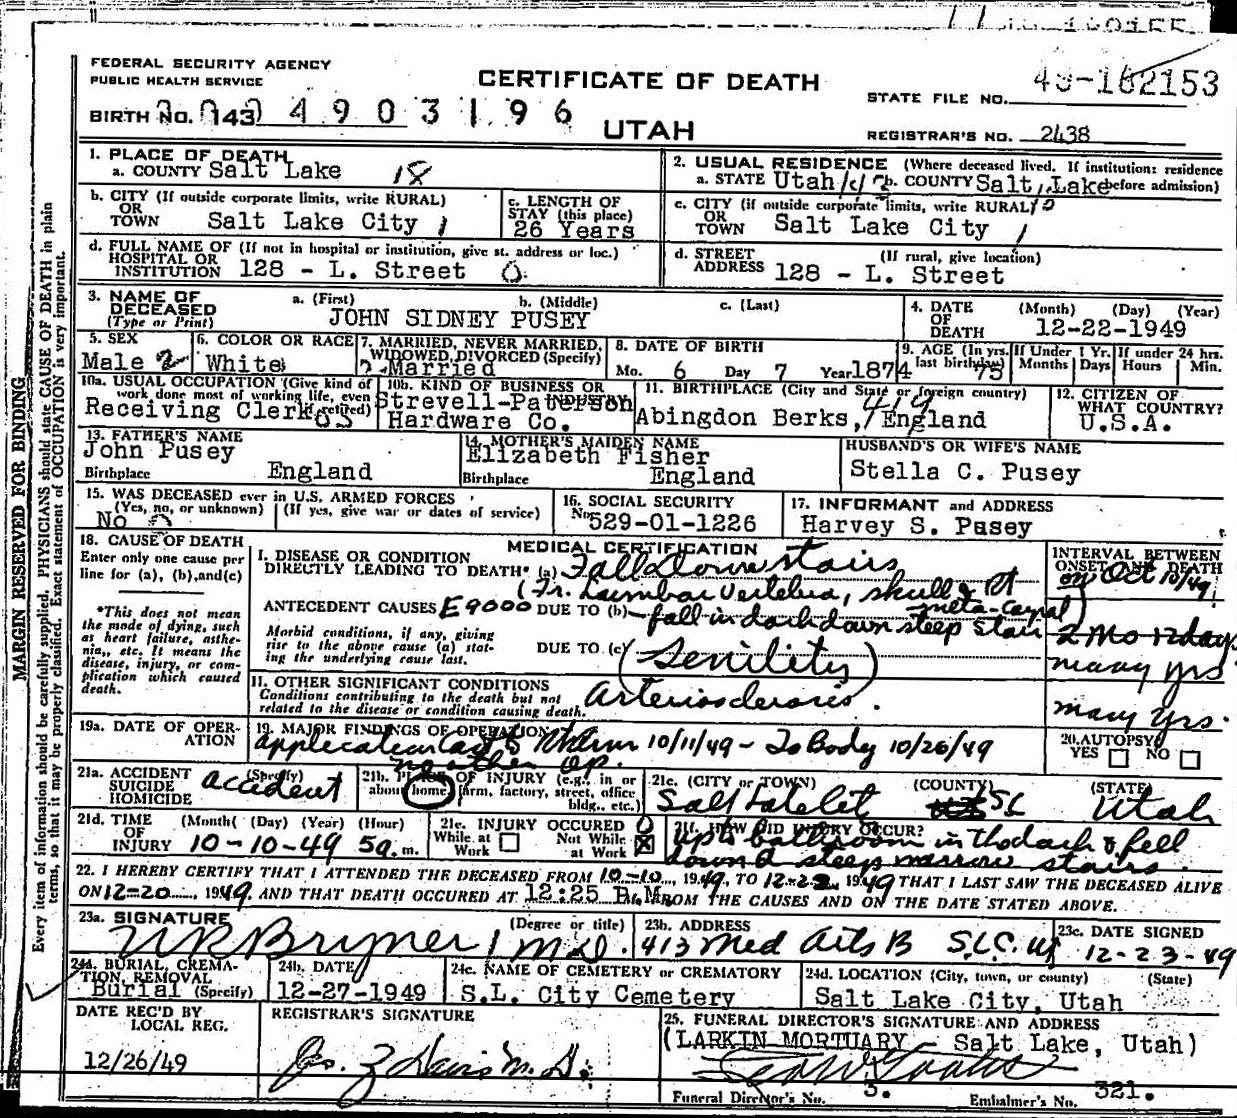 FEDERAL SECURITY AGENCY
PUBLIC HEALTH SERVICE
CERTIFICATE OF DEATH
STATE FILE NO. 49-182153
BIRTH NO. 143 4903196
UTAH
REGISTRAR'S NO. 2438
1. PLACE OF DEATH
a. COUNTY Salt Lake 18
2. USUAL RESIDENCE (Where deceased lived. If institution: residence before admission)
a. STATE Utah b. COUNTY Salt Lake
b. CITY (If outside corporate limits, write RURAL)
OR
TOWN Salt Lake City 1
c. LENGTH OF
STAY (this place)
26 Years
c. CITY (if outside corporate limits, write RURAL)
OR
TOWN Salt Lake City 1
d. FULL NAME OF (If not in hospital or institution, give st. address or loc.)
HOSPITAL OR
INSTITUTION 128 - L. Street 0
d. STREET (If rural, give location)
ADDRESS 128 - L. Street
3. NAME OF
DECEASED
(Type or Print)
a. (First) b. (Middle) c. (Last)
JOHN SIDNEY PUSEY
4. DATE (Month) (Day) (Year)
OF
DEATH 12-22-1949
5. SEX
Male 2
6. COLOR OR RACE
White
7. MARRIED, NEVER MARRIED,
WIDOWED, DIVORCED (Specify)
Married
8. DATE OF BIRTH
Mo. 6 Day 7 Year 1874
9. AGE (In yrs.
last birthday) 75
If Under 1 Yr.
Months Days
If under 24 hrs.
Hours Min.
10a. USUAL OCCUPATION (Give kind of
work done most of working life, even
if retired)
Receiving Clerk
10b. KIND OF BUSINESS OR
INDUSTRY
Strevell-Paterson
Hardware Co.
11. BIRTHPLACE (City and State or foreign country)
Abingdon Berks, England
12. CITIZEN OF
WHAT COUNTRY?
U.S.A.
13. FATHER'S NAME
John Pusey
Birthplace England
14. MOTHER'S MAIDEN NAME
Elizabeth Fisher
Birthplace England
HUSBAND'S OR WIFE'S NAME
Stella C. Pusey
15. WAS DECEASED ever in U.S. ARMED FORCES
(Yes, no, or unknown) (If yes, give war or dates of service)
No
16. SOCIAL SECURITY
No. 529-01-1226
17. INFORMANT and ADDRESS
Harvey S. Pusey
18. CAUSE OF DEATH
Enter only one cause per
line for (a), (b), and (c)
*This does not mean
the mode of dying, such
as heart failure, asthe-
nia, etc. It means the
disease, injury, or com-
plication which caused
death.
MEDICAL CERTIFICATION
I. DISEASE OR CONDITION
DIRECTLY LEADING TO DEATH* (a) Fall Down stairs
(Fr. Lumbar Vertebra, skull & Rt
meta-carpal)
ANTECEDENT CAUSES E9000 DUE TO (b) fall in dark down steep stair
Morbid conditions, if any, giving
rise to the above cause (a) stat-
ing the underlying cause last.
DUE TO (c) (Senility)
II. OTHER SIGNIFICANT CONDITIONS
Conditions contributing to the death but not
related to the disease or condition causing death.
Arteriosclerosis.
INTERVAL BETWEEN
ONSET AND DEATH
on Oct 10/49
2 Mo 12 days
many yrs
many yrs.
19a. DATE OF OPER-
ATION
19. MAJOR FINDINGS OF OPERATION
application Cast to 10/11/49 - To Body 10/26/49
no other op.
20. AUTOPSY
YES NO
21a. ACCIDENT (Specify)
SUICIDE
HOMICIDE
accident
21b. PLACE OF INJURY (e.g., in or
about home, farm, factory, street, office
bldg., etc.)
21c. (CITY or TOWN) (COUNTY) (STATE)
Salt Lake Cit SL Utah
21d. TIME (Month) (Day) (Year) (Hour)
OF
INJURY 10-10-49 5 a. m.
21e. INJURY OCCURED
While at Work Not While at Work X
21f. HOW DID INJURY OCCUR?
up to bathroom in the dark & fell
down steep narrow stairs.
22. I HEREBY CERTIFY THAT I ATTENDED THE DECEASED FROM 10-10, 1949, TO 12-22, 1949 THAT I LAST SAW THE DECEASED ALIVE
ON 12-20, 1949 AND THAT DEATH OCCURED AT 12:25 P. M. FROM THE CAUSES AND ON THE DATE STATED ABOVE.
23a. SIGNATURE (Degree or title)
Bryner M.D.
23b. ADDRESS
413 Med Arts B S.L.C. Ut
23c. DATE SIGNED
12-23-49
24a. BURIAL, CREMA-
TION, REMOVAL
Burial (Specify)
24b. DATE
12-27-1949
24c. NAME OF CEMETERY or CREMATORY
S.L. City Cemetery
24d. LOCATION (City, town, or county) (State)
Salt Lake City, Utah
DATE REC'D BY
LOCAL REG.
12/26/49
REGISTRAR'S SIGNATURE
Jos. Z Davis M.D.
25. FUNERAL DIRECTOR'S SIGNATURE AND ADDRESS
(LARKIN MORTUARY - Salt Lake, Utah)
Funeral Director's No. 3. Embalmer's No. 321.
MARGIN RESERVED FOR BINDING
Every item of information should be carefully supplied. PHYSICIANS should state CAUSE OF DEATH in plain
terms, so that it may be properly classified. Exact statement of OCCUPATION is very important.